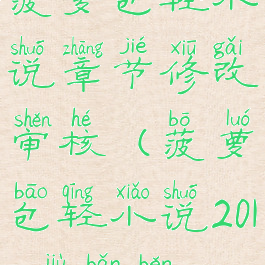 菠萝包轻小
shuō zhāng jié xiū gǎi
说章节修改
shěn hé bō luó
审核（菠萝
bāo qīng xiǎo shuō
包轻小说201
jiù bǎn běn